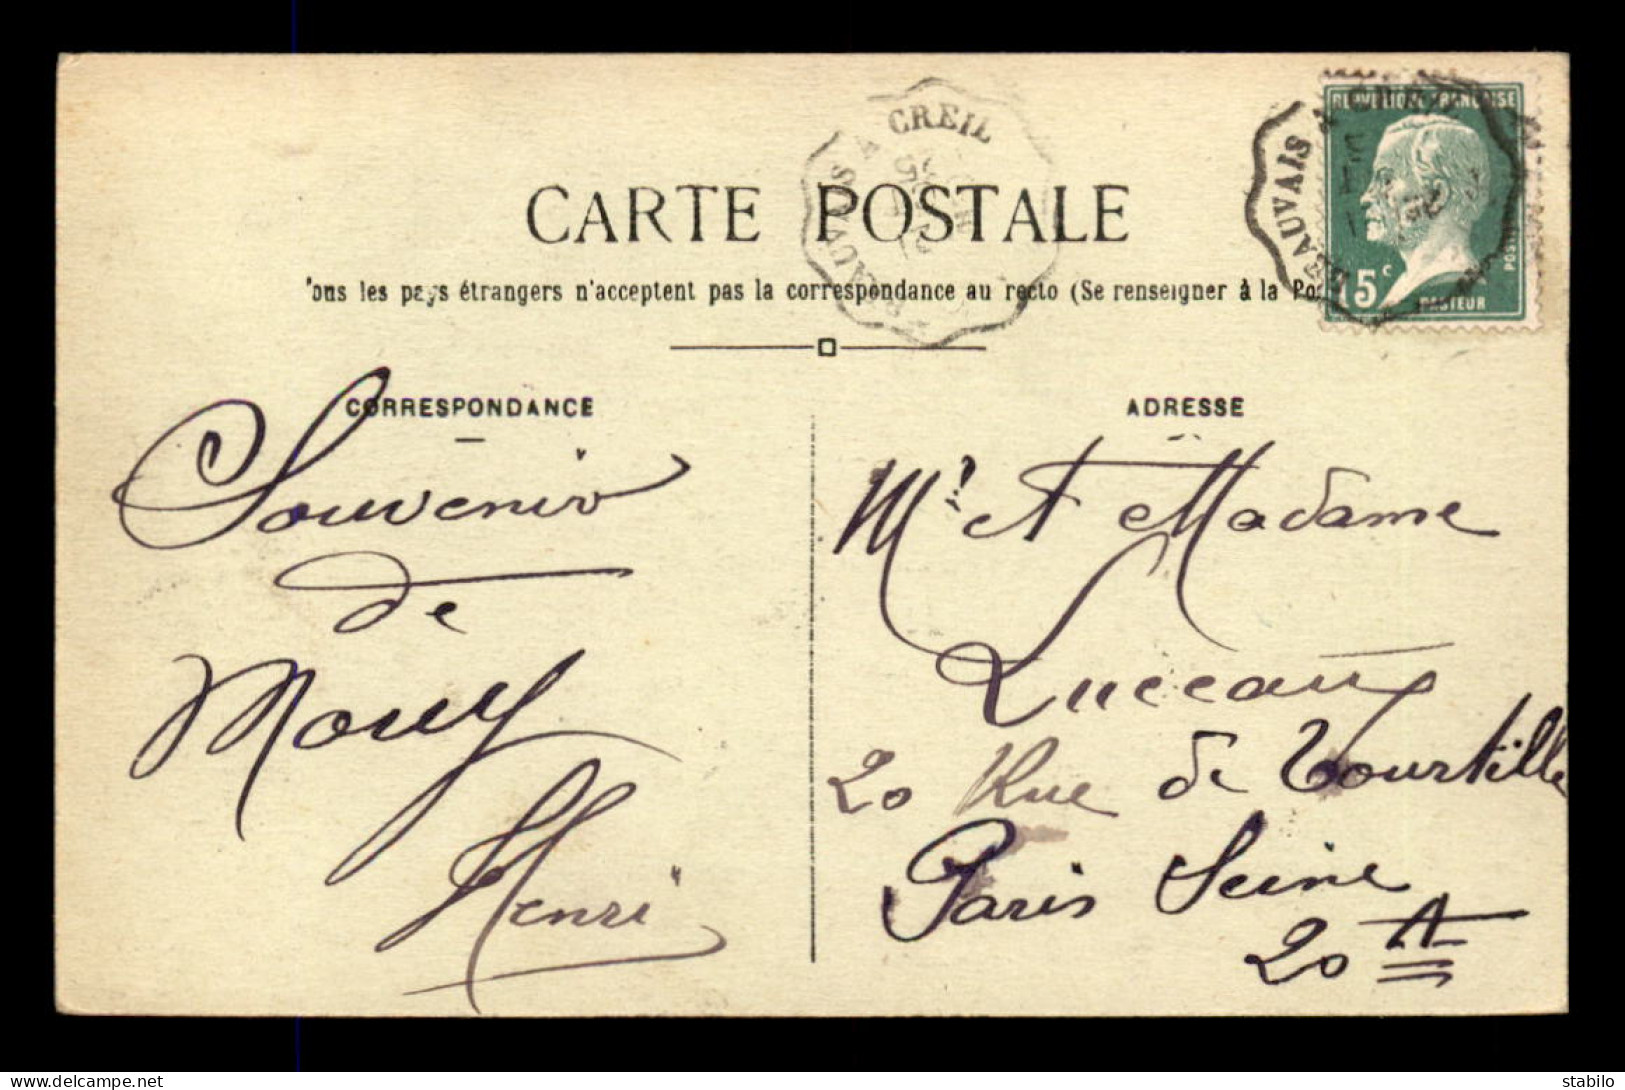 BEAUVAIS A CREIL
BEAUVAIS A CREIL
REPUBLIQUE FRANÇAISE
15c
POSTES
PASTEUR
CARTE POSTALE
Tous les pays étrangers n'acceptent pas la correspondance au recto (Se renseigner à la Pos
CORRESPONDANCE
Souvenir
de
Mouy
Henri
ADRESSE
Mr. et Madame
Lucceaux
20 Rue de Tourtille
Paris Seine
20 A
delcampe.net
stabilo